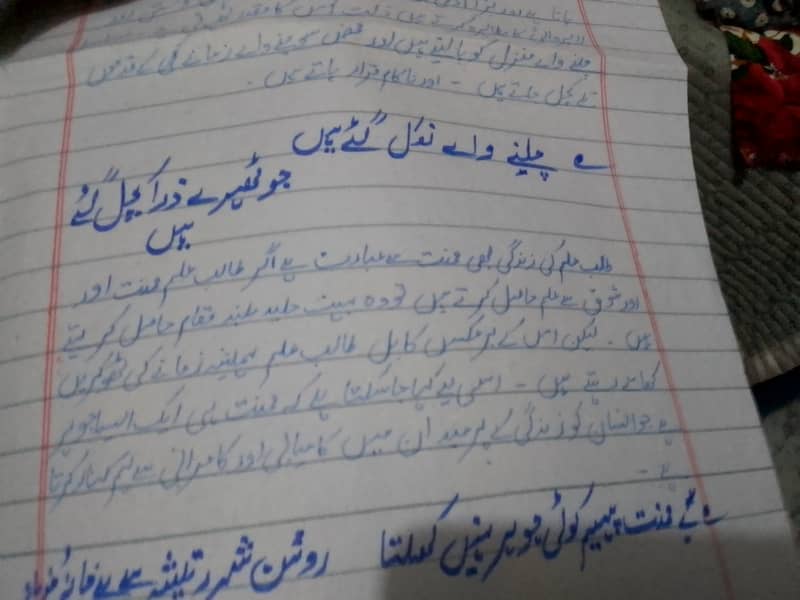 چلنے والے منزل کو پا لیتے ہیں اور محض سوچنے والے زمانے کے قدموں
تلے کچل جاتے ہیں - اور ناکام قرار پاتے ہیں -
؎ چلنے والے نکل گئے ہیں
جو ٹھہرے ذرا کچل گئے
ہیں
طالب علم کی زندگی بھی محنت سے عبارت ہے اگر طالب علم محنت اور
اور شوق سے علم حاصل کرتے ہیں تو وہ بہت جلد بلند مقام حاصل کر لیتے
ہیں - لیکن اس کے برعکس کاہل طالب علم ہمیشہ زمانے کی ٹھوکریں
کھاتے رہتے ہیں - اسی لیے کہا جا سکتا ہے کہ محنت ہی ایک ایسا جوہر
ہے جو انسان کو زندگی کے ہر میدان میں کامیابی اور کامرانی سے ہمکنار کرتا
ہے -
؎ بے محنت پیہم کوئی جوہر نہیں کھلتا
روشن شرر تیشہ سے ہے خانہ فرہاد